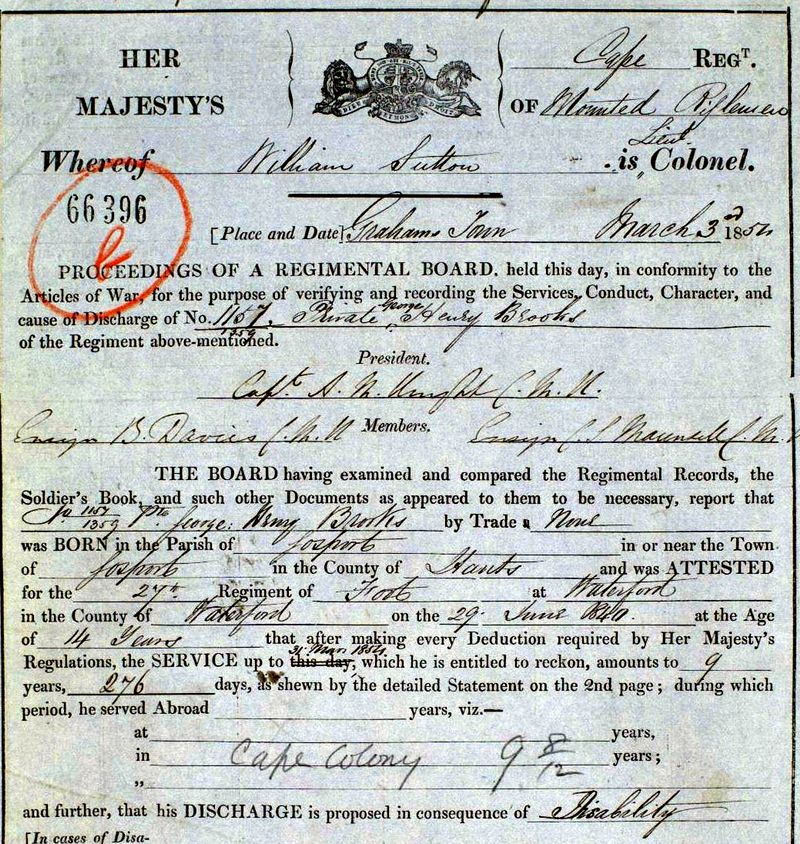 HER MAJESTY'S
Cape REGT.
OF Mounted Riflemen
Whereof William Sutton is Lieut. Colonel.
66396
[Place and Date] Grahams Town March 3rd 1854
PROCEEDINGS OF A REGIMENTAL BOARD, held this day, in conformity to the
Articles of War, for the purpose of verifying and recording the Services, Conduct, Character, and
cause of Discharge of No. 1157 1359 Private George Henry Brooks
of the Regiment above-mentioned.
President.
Capt. A. C.M.R.
Members.
Ensign B. Davies C.M.R Ensign C.M.R
THE BOARD having examined and compared the Regimental Records, the
Soldier's Book, and such other Documents as appeared to them to be necessary, report that
No 1157 1359 Pte George Henry Brooks by Trade a None
was BORN in the Parish of Gosport in or near the Town
of Gosport in the County of Hants and was ATTESTED
for the 27th Regiment of Foot at Waterford
in the County of Waterford on the 29 June 1840 at the Age
of 14 Years that after making every Deduction required by Her Majesty's
Regulations, the SERVICE up to this day, 31 Mar. 1854 which he is entitled to reckon, amounts to 9
years, 276 days, as shewn by the detailed Statement on the 2nd page; during which
period, he served Abroad years, viz.—
at years,
in Cape Colony 9 8/12 years;
„
and further, that his DISCHARGE is proposed in consequence of Disability
[In cases of Disa-